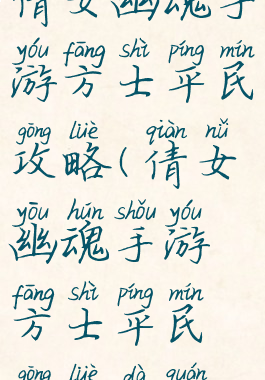 倩女幽魂手
yóu fāng shì píng mín
游方士平民
gōng lüè qiàn nǚ
攻略(倩女
yōu hún shǒu yóu
幽魂手游
fāng shì píng mín
方士平民
gōng lüè dà quán